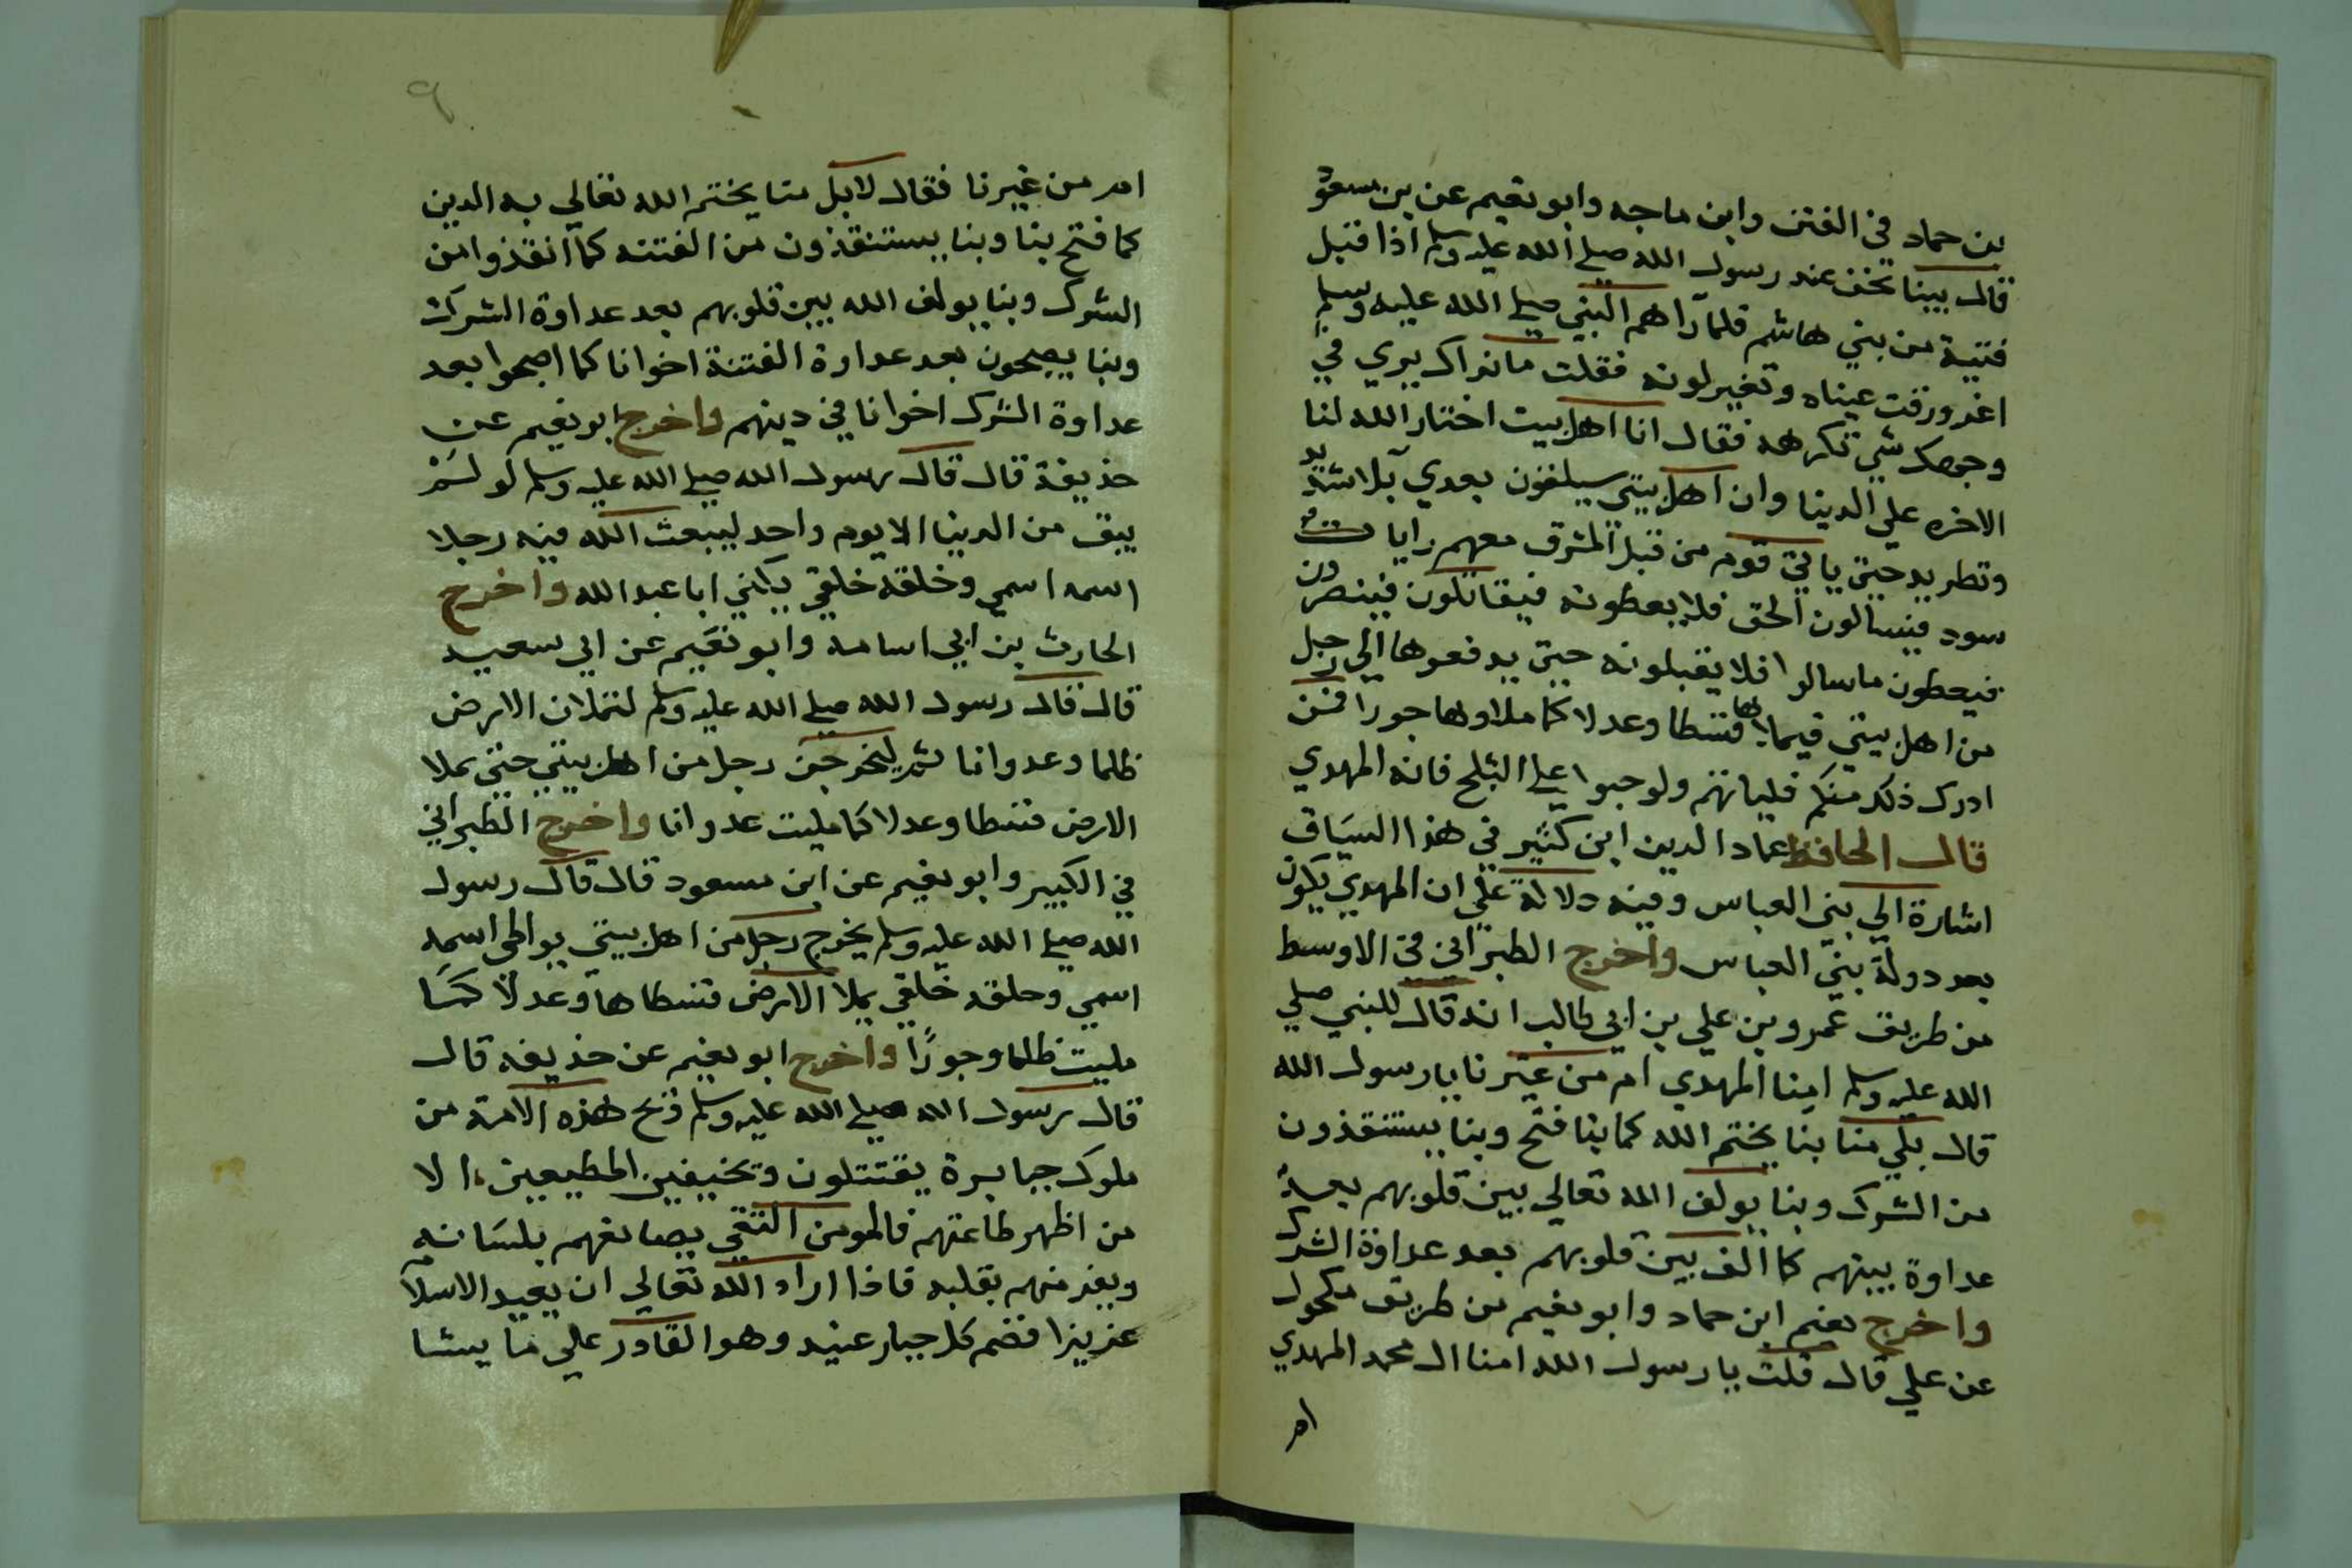 بن حماد في الفتن وابن ماجه وابو نعيم عن بن مسعود
قال بينا نحن عند رسول الله صلي الله عليه وسلم اذا قبل
فتية من بني هاشم فلما رآهم النبي صلي الله عليه وسلم
اغرورقت عيناه وتغير لونه فقلت ما نراك يري في
وجهك شي تكرهه فقال انا اهل بيت اختار الله لنا
الاخره علي الدينا وان اهل بيتي سيلقون بعدي بلا شديد
وتطريد حتي ياتي قوم من قبل المشرق معهم رايات
سود فيسالون الحق فلا يعطونه فيقاتلون فينصرون
فيعطون ما سالوا فلا يقبلونه حتي يدفعوها الي رجل
من اهل بيتي فيملاها قسطا وعدلا كما ملاوها جورا فمن
ادرك ذلك منكم فلياتهم ولو حبوا علي الثلج فانه المهدي
قال الحافظ عماد الدين ابن كثير في هذا السياق
اشارة الي بني العباس وفيه دلالة علي ان المهدي يكون
بعد دولة بني العباس واخرج الطبراني في الاوسط
من طريق عمرو بن علي بن ابي طالب انه قال للنبي صلي
الله عليه وسلم امنا المهدي ام من غيرنا يا رسول الله
قال بلي منا بنا يختم الله كما بنا فتح وبنا يستنقذون
من الشرك وبنا يولف الله تعالي بين قلوبهم بعد
عداوة بينهم كما الف بين قلوبهم بعد عداوة الشرك
واخرج نعيم ابن حماد وابو نعيم من طريق مكحول
عن علي قال قلت يا رسول الله امنا ال محمد المهدي
ام
٩
ام من غيرنا فقال لا بل منا يختم الله تعالي به الدين
كما فتح بنا وبنا يستنقذون من الفتنه كما انقذوا من
الشرك وبنا يولف الله بين قلوبهم بعد عداوة الشرك
وبنا يصبحون بعد عداوة الفتنة اخوانا كما اصبحوا بعد
عداوة الشرك اخوانا في دينهم واخرج ابو نعيم عن
حذيفة قال قال رسول الله صلي الله عليه وسلم لو لم
يبق من الدينا الا يوم واحد ليبعث الله فيه رجلا
اسمه اسمي وخلقه خلقي يكني ابا عبد الله واخرج
الحارث بن ابي اسامه وابو نعيم عن ابي سعيد
قال قال رسول الله صلي الله عليه وسلم لتملان الارض
ظلما وعدوانا ثم ليخرجن رجل من اهل بيتي حتي يملا
الارض قسطا وعدلا كما مليت عدوانا واخرج الطبراني
في الكبير وابو نعيم عن ابن مسعود قال قال رسول
الله صلي الله عليه وسلم يخرج رجل من اهل بيتي يواطي اسمه
اسمي وخلقه خلقي يملا الارض قسطا ها وعدلا كما
مليت ظلما وجورًا واخرج ابو نعيم عن حذيفه قال
قال رسول الله صلي الله عليه وسلم ويح هذه الامة من
ملوك جبابرة يقتتلون وتخنيفين المطيعين الا
من اظهر طاعتهم فالمومن التقي يصانعهم بلسانه
ويفر منهم بقلبه فاذا اراد الله تعالي ان يعيد الاسلام
عزيزا قصم كل جبار عنيد وهو القادر علي ما يشا